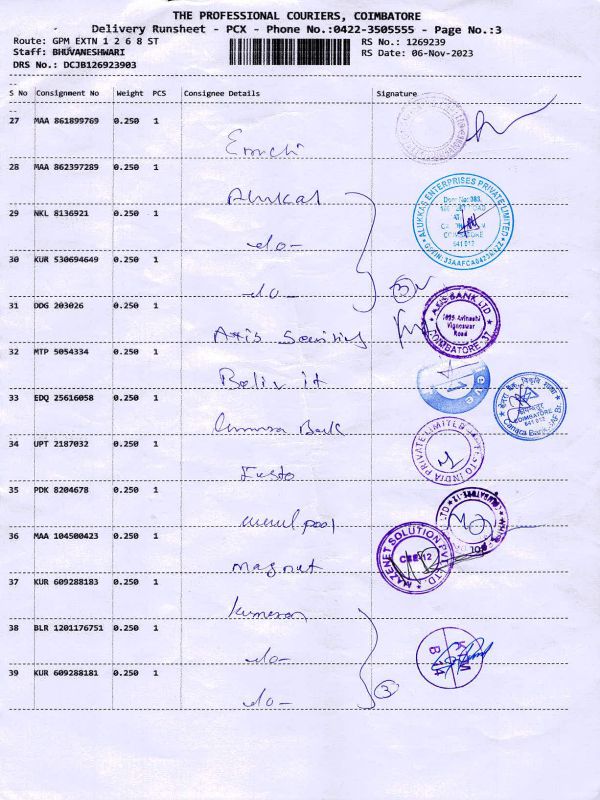 THE PROFESSIONAL COURIERS, COIMBATORE
Delivery Runsheet - PCX - Phone No.:0422-3505555 - Page No.:3
Route: GPM EXTN 1 2 6 8 ST
RS No.: 1269239
Staff: BHUVANESHWARI
RS Date: 06-Nov-2023
DRS No.: DCJB126923903
S No Consignment No Weight PCS Consignee Details Signature
27 MAA 861899769 0.250 1
28 MAA 862397289 0.250 1 Alukal
ALUKKAS ENTERPRISES PRIVATE LIMITED
COIMBATORE
641 012
29 NKL 8136921 0.250 1 -do-
30 KUR 530694649 0.250 1 -do-
3
31 DDG 203026 0.250 1 Axis
AXIS BANK LTD
1095 Avinashi
Road
COIMBATORE 37
32 MTP 5054334 0.250 1 Beliv it
33 EDQ 25616058 0.250 1 Bank
COIMBATORE
641 012
Canara Bank
34 UPT 2187032 0.250 1
INDIA PRIVATE LIMITED
35 PDK 8204678 0.250 1
36 MAA 104500423 0.250 1 Magnet
MAZENET SOLUTION PVT LTD.
CBE-12
37 KUR 609288183 0.250 1 Kumeran
38 BLR 1201176751 0.250 1 -do-
39 KUR 609288181 0.250 1 -do-
3